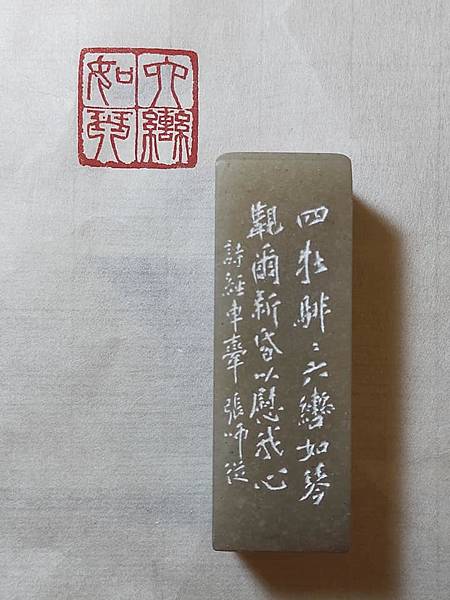 六轡
如琴
四牡騑〻六轡如琴
覯爾新昏以慰我心
詩經車舝 張